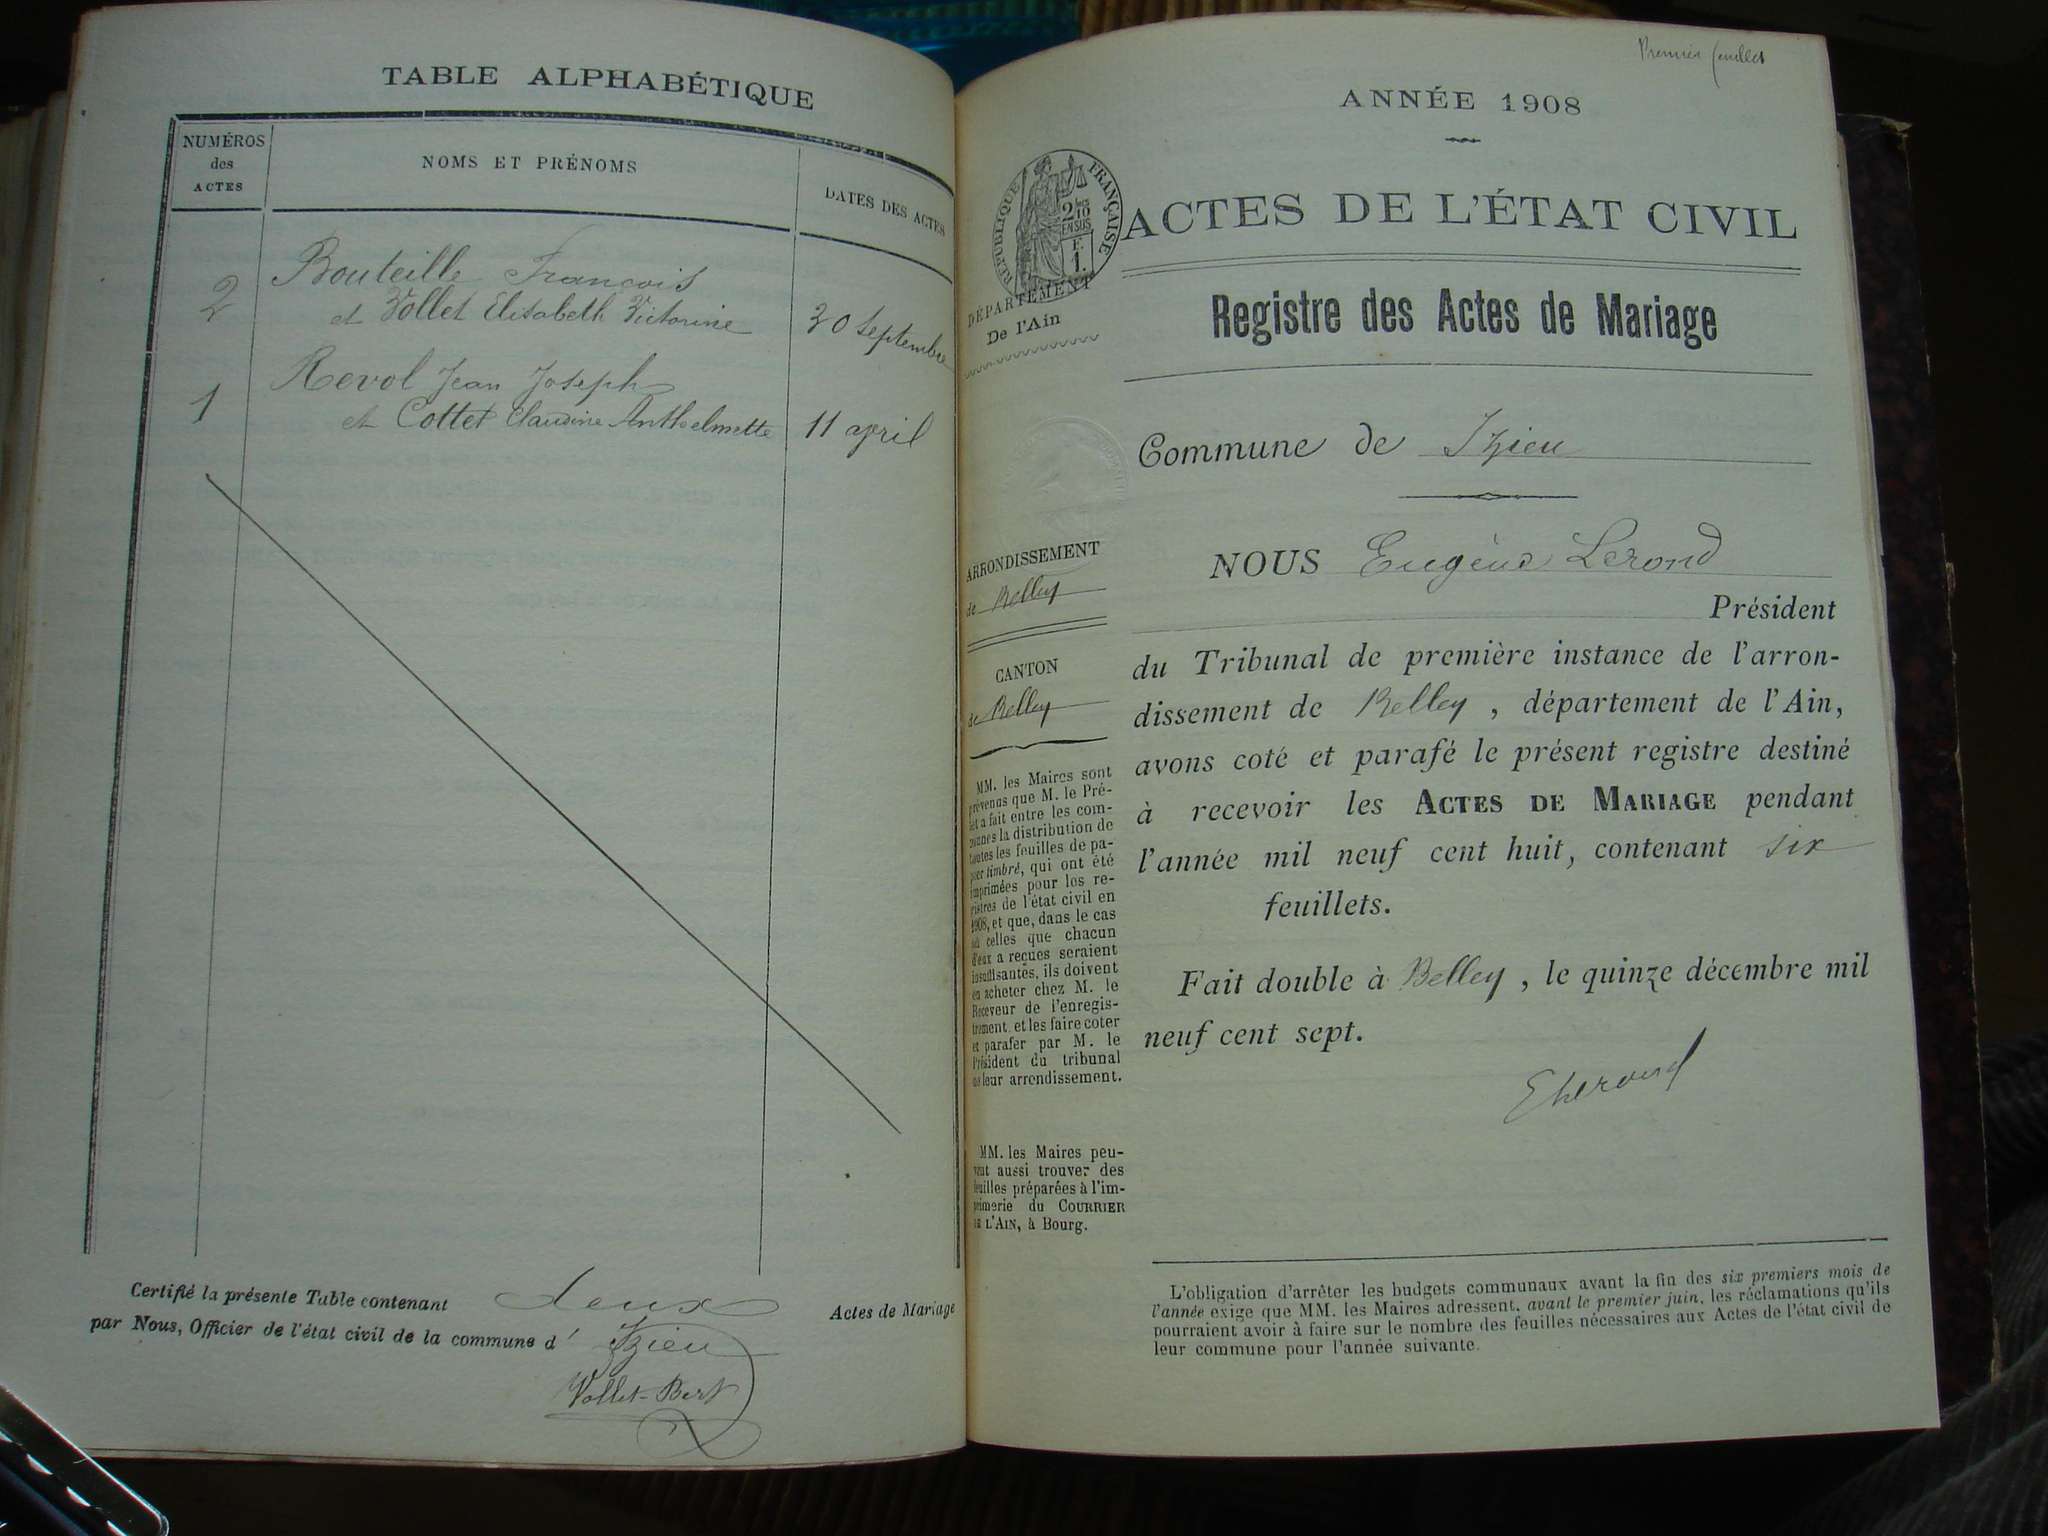 TABLE ALPHABÉTIQUE
NUMÉROS
des
ACTES
NOMS ET PRÉNOMS
DATES DES ACTES
2
Bouteille François
et Vollet Elisabeth Victorine
30 septembre
1
Revol Jean Joseph
et Cottet Claudine Anthelmette
11 april
Certifié la présente Table contenant deux Actes de Mariage
par Nous, Officier de l'état civil de la commune d' Izieu
Vollet-Bert
Premier feuillet
ANNÉE 1908
RÉPUBLIQUE FRANÇAISE
2/10
EN SUS
F.
1.
ACTES DE L'ÉTAT CIVIL
DÉPARTEMENT
De l'Ain
Registre des Actes de Mariage
Commune de Izieu
ARRONDISSEMENT
de Belley
CANTON
de Belley
MM. les Maires sont
prévenus que M. le Pré-
fet a fait entre les com-
munes la distribution de
toutes les feuilles de pa-
pier timbré, qui ont été
imprimées pour les re-
gistres de l'état civil en
1908, et que, dans le cas
où celles que chacun
d'eux a reçues seraient
insuffisantes, ils doivent
en acheter chez M. le
Receveur de l'enregis-
trement, et les faire coter
et parafer par M. le
Président du tribunal
de leur arrondissement.
MM. les Maires peu-
vent aussi trouver des
feuilles préparées à l'im-
primerie du COURRIER
DE L'AIN, à Bourg.
NOUS Eugène Lerond
Président
du Tribunal de première instance de l'arron-
dissement de Belley, département de l'Ain,
avons coté et parafé le présent registre destiné
à recevoir les ACTES DE MARIAGE pendant
l'année mil neuf cent huit, contenant six
feuillets.
Fait double à Belley, le quinze décembre mil
neuf cent sept.
L'obligation d'arrêter les budgets communaux avant la fin des six premiers mois de
l'année exige que MM. les Maires adressent, avant le premier juin, les réclamations qu'ils
pourraient avoir à faire sur le nombre des feuilles nécessaires aux Actes de l'état civil de
leur commune pour l'année suivante.